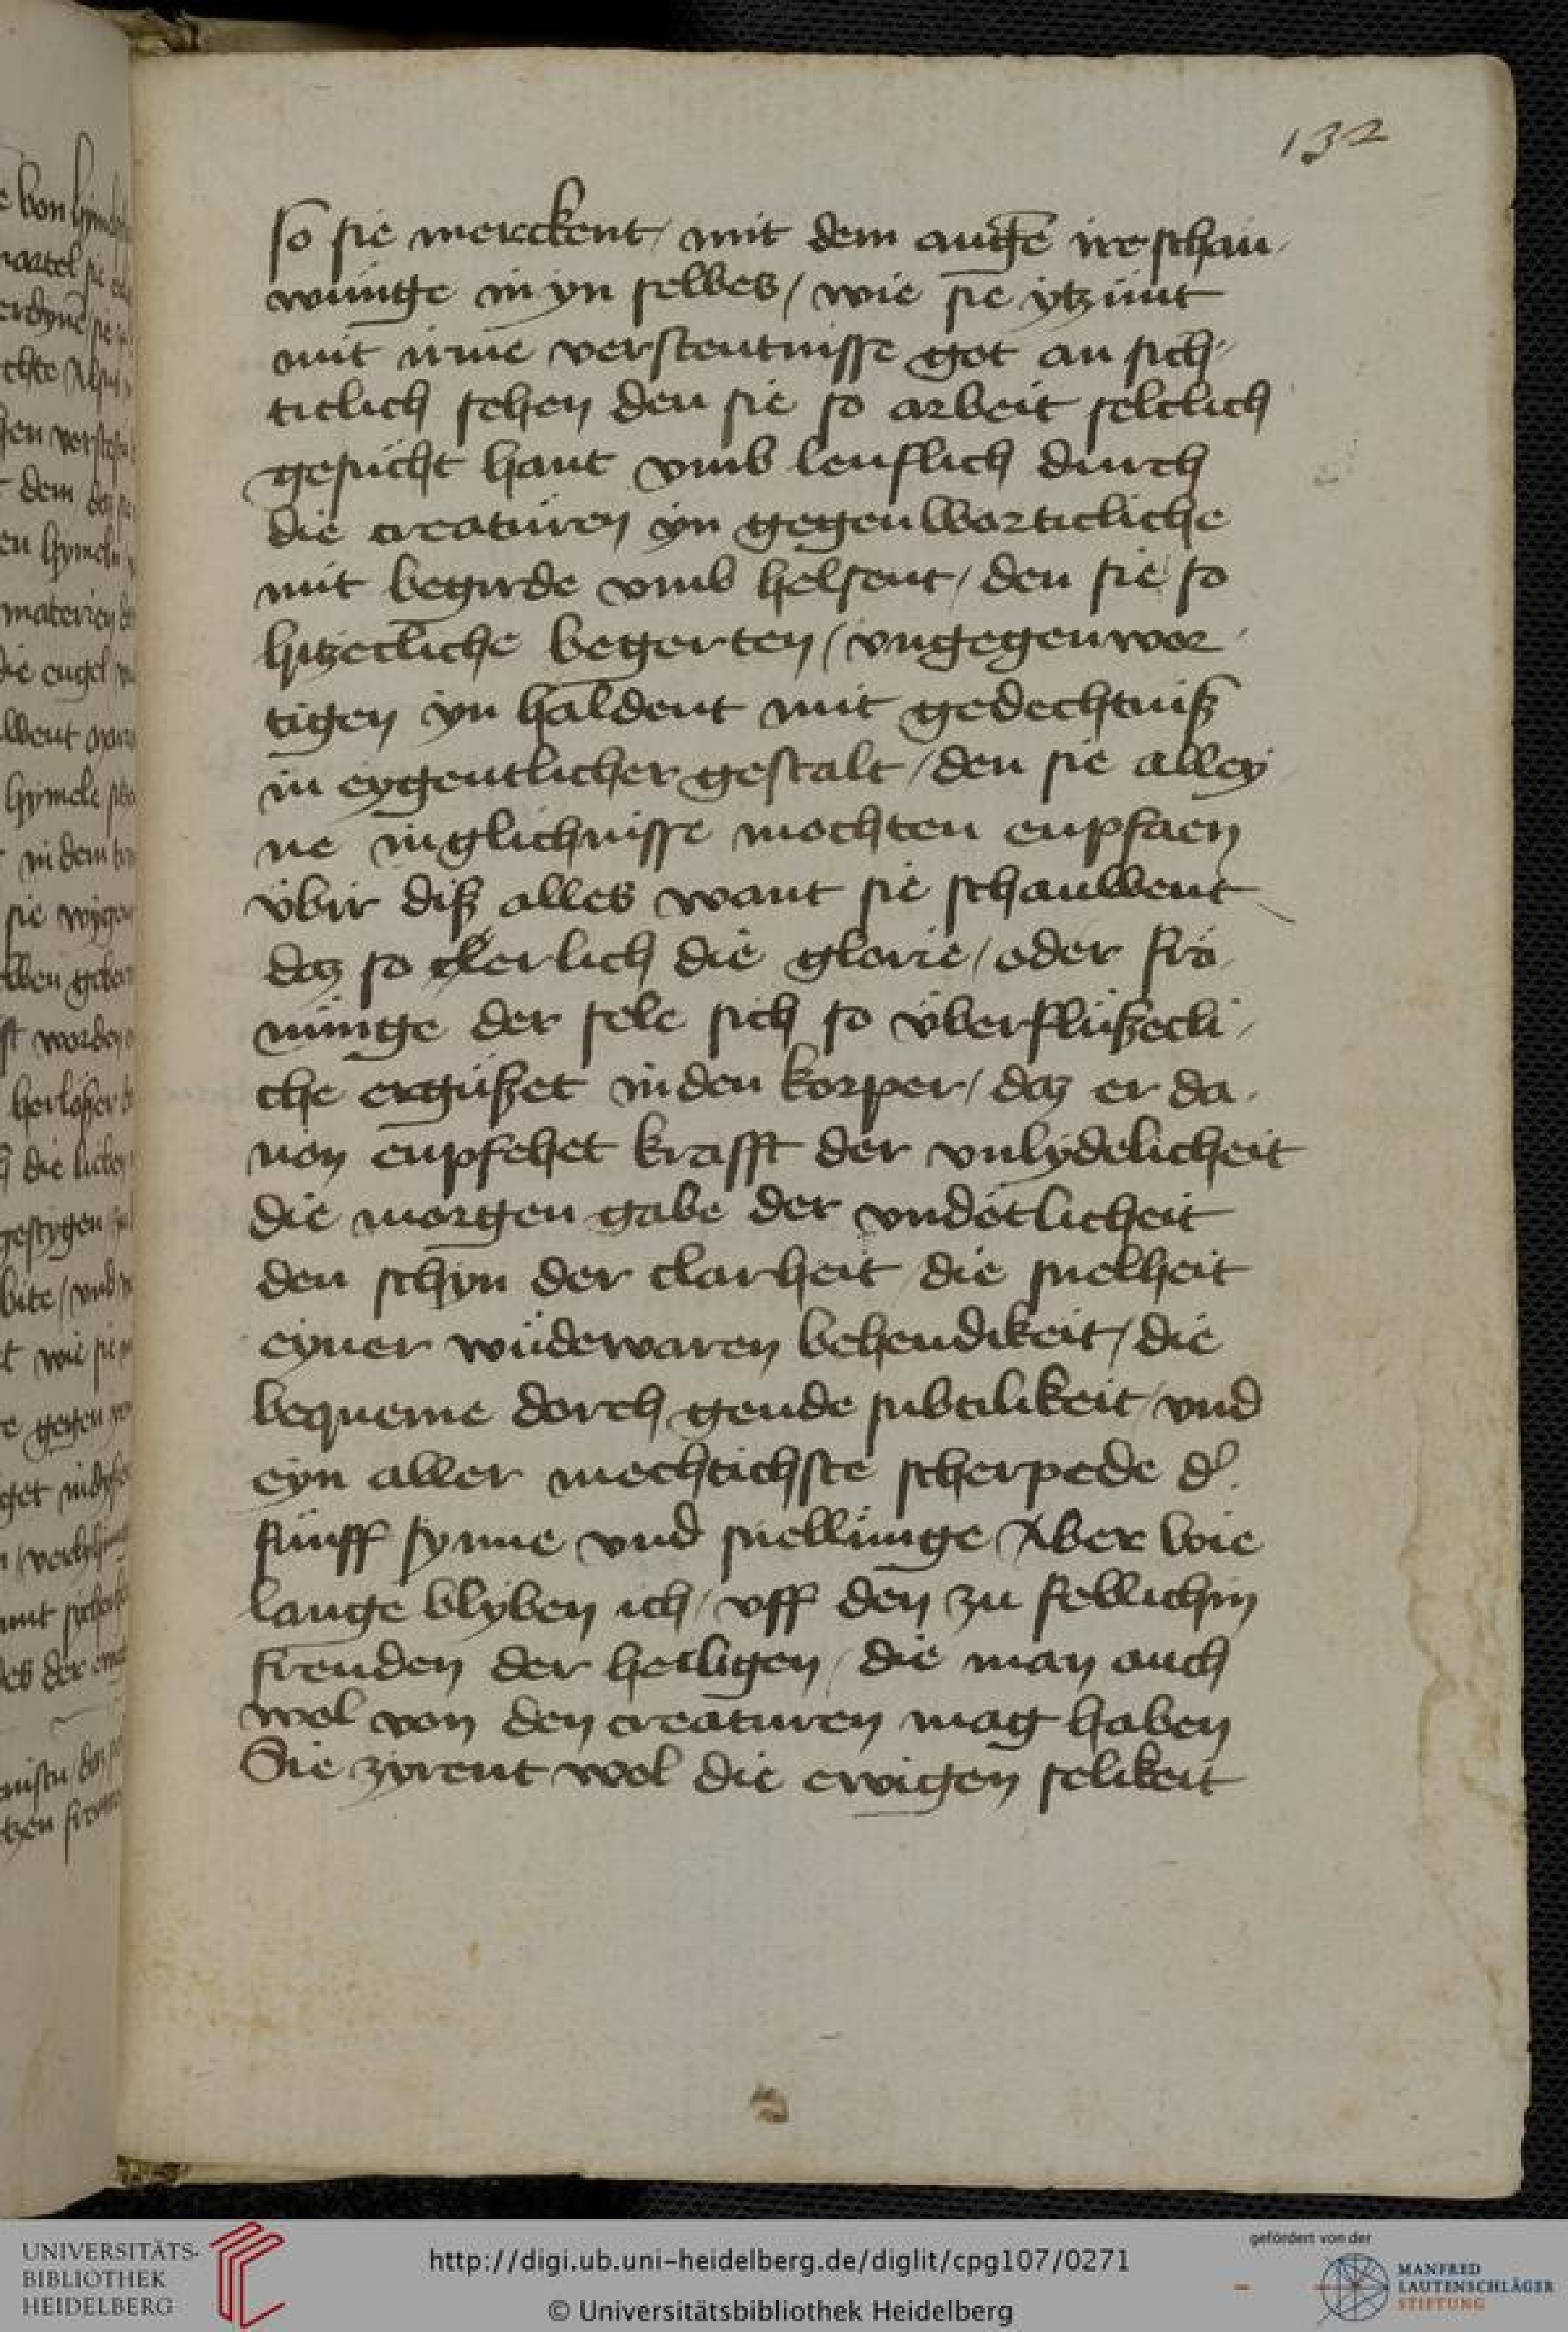 132
so sie merckent / mit dem augē ire schau /
wunge in yn selbes / wie sie ytzunt
mit irme verstentnisse got an sich /
ticlich sehen den sie so arbeit seclich
gesucht hant vmb leuflich durch
die creaturen yn gegenworticliche
mit begirde vmb helsent / den sie so
hitzecliche begerten / vngegenwor /
tigen yn haldent mit gedechtniß
in eygentlicher gestalt / den sie alley
ne in glichnisse mochten enpfaen
vbir diß alles want sie schauwent
daz so clerlich die glorie / oder fro /
nunge der sele sich so vberflußecli /
che ergußet in den korper / daz er da /
uon enpfehet krafft der vnlydelicheit
die morgen gabe der vndotlicheit
den schyn der clarheit die snelheit
eyner wudewaren behendikeit / die
bequeme dorch gende subtilikeit / vnd
eyn aller mechtichste scherpede d'
funff synne vnd snellunge Aber wie
lange blyben ich / vff den zu fellichin
freuden der heiligen / die man auch
wol von den creaturen mag haben
Sie zyrent wol die ewigen selikeit
UNIVERSITÄTS-
BIBLIOTHEK
HEIDELBERG
http://digi.ub.uni-heidelberg.de/diglit/cpg107/0271
© Universitätsbibliothek Heidelberg
gefördert von der
MANFRED
LAUTENSCHLÄGER
STIFTUNG